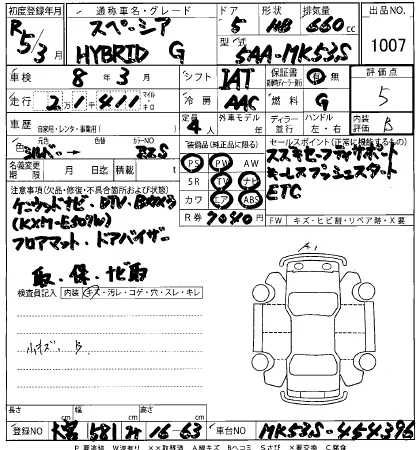 初度登録年月 通称車名・グレード ドア 形状 排気量 出品NO.
R5/3月 スペーシア HYBRID G 5 HB 660cc 1007
型式 5AA-MK53S
車検 8年3月 シフト IAT 保証書 有 無 評価点
走行 21411 マイル キロ 冷房 AAC 燃料 G 5
車歴 自家用・レンタ・事業用( ) 定員 4人 外車モデル 年 ディーラー 並行 ハンドル 左・右 内装 B
色 元色 シルバー 色替 カラーNO
名義変更期限 月 日迄 積載 t
装備品(純正品に限る)
PS PW AW
SR TV ナビ
カワ エアB ABS
R券 70410円
セールスポイント(正常に機能するもの)
スズキセーフティサポート
キーレスプッシュスタート
ETC
注意事項(欠品・修復・不具合箇所及び状態)
ケンウッドナビ・DTV・
フロアマット・ドアバイザー
取・保・ナビ取
FW キズ・ヒビ割・リペア跡・X要
検査員記入 内装 キズ・汚レ・コゲ・穴・スレ・キレ
小キズ B
A1
長さ cm 幅 cm 高さ cm
登録NO 581 16-63 車台NO MK53S-454396
P要塗装 W波有り XX取替済 A線キズ Bヘコミ Sさび X要交換 C腐食